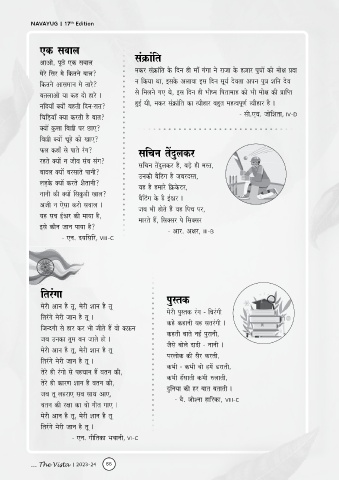 NAVAYUG | 17th Edition
एक सवाल
आओ, पूछें एक सवाल
मेरे सिर में कितने बाल?
कितने आसमान में तारे?
बतलाओ या कह दो हारे ।
नदियाँ क्यों बहती दिन रात?
चिड़ियाँ क्या करती हैं बात?
क्यों कुत्ता बिल्ली पर धाए?
बिल्ली क्यों चूहे को खाए?
फूल कहाँ से पाते रंग?
रहते क्यों न जीव सब संग?
बादल क्यों बरसाते पानी?
लड़के क्यों करते शैतानी?
नानी की क्यों सिकुड़ी खाल?
अजी न ऐसा करो सवाल ।
यह सब ईश्वर की माया है,
इसे कौन जान पाया है?
- एन. , VIII-C
संक्रांति
मकर संक्रांति के दिन ही माँ गंगा ने राजा के हजार पुत्रों को मोक्ष प्रदान किया था, इसके अलावा इस दिन सूर्य देवता अपन पुत्र शनि देव
से मिलने गए थे, इस दिन ही भीष्म पितामाह को भी मोक्ष की प्राप्ति
हुई थी, मकर संक्रांति का त्यौहार बहुत महत्वपूर्ण त्यौहार है ।
- सी.एच. जोशिता, IV-D
सचिन तेंदुलकर
सचिन तेंदुलकर है, बड़े ही मस्त,
उनकी बैटिंग है जबरदस्त,
यह है हमारे क्रिकेटर,
बैटिंग के है ईश्वर ।
जब भी होते हैं वह पिच पर,
मारते हैं, सिक्सर पे सिक्सर
- आर. अक्षर, III-B
तिरंगा
मेरी आन है तू, मेरी शान है तू
तिरंगे मेरी जान है तू ।
जिन्दगी से हार कर भी जीते हैं वो
जब उनका तुम बन जाते हो ।
मेरी आन है तू, मेरी शान है तू
तिरंगे मेरी जान है तू ।
तेरे ही रंगो से पहचान है वतन की,
तेरे ही कारण शान है वतन की,
जब तू लहराए सब साथ आए,
वतन की रक्षा का वो गीत गाए ।
मेरी आन है तू, मेरी शान है तू
तिरंगे मेरी जान है तू ।
- एन. गीतिका भवानी, VI-C
पुस्तक
मेरी पुस्तक रंग - बिरंगी
कहे कहानी यह सतरंगी ।
कहती बातें नई पुरानी,
जैसे बोले दादी - नानी ।
परलोक की सैर करती,
कभी - कभी वो हमें डराती,
कभी हँसाती कभी रुलाती,
दुनिया की हर बात बताती ।
- वै. जोशना हारिका, VIII-C
... The Vista | 2023-24 66